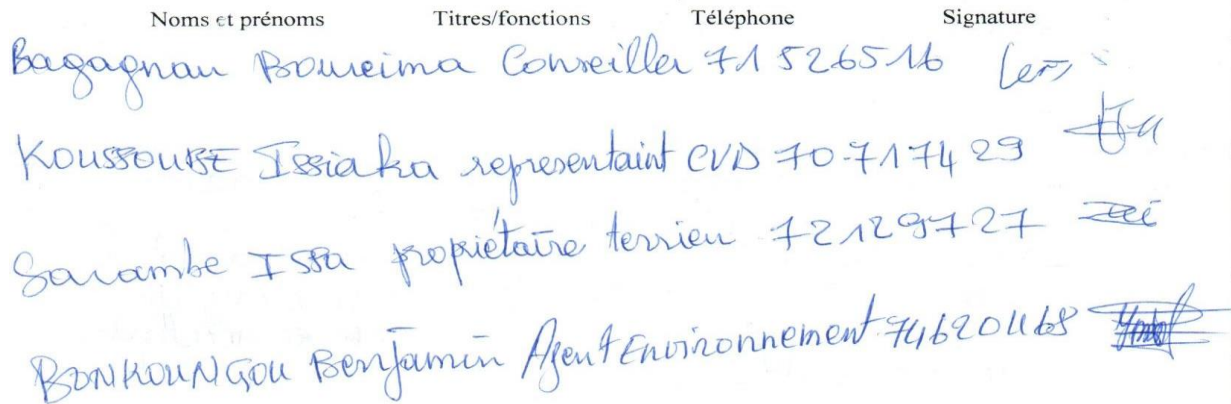 Noms et prénoms Titres/fonctions Téléphone Signature
Bagagnan Boureima Conseiller 71526516
KOUSSOUBE Issiaka representaint CVD 70717429
Sawambe Issa propiétaire terrien 72129727
BONKOUNGOU Benjamin Agent Environnement